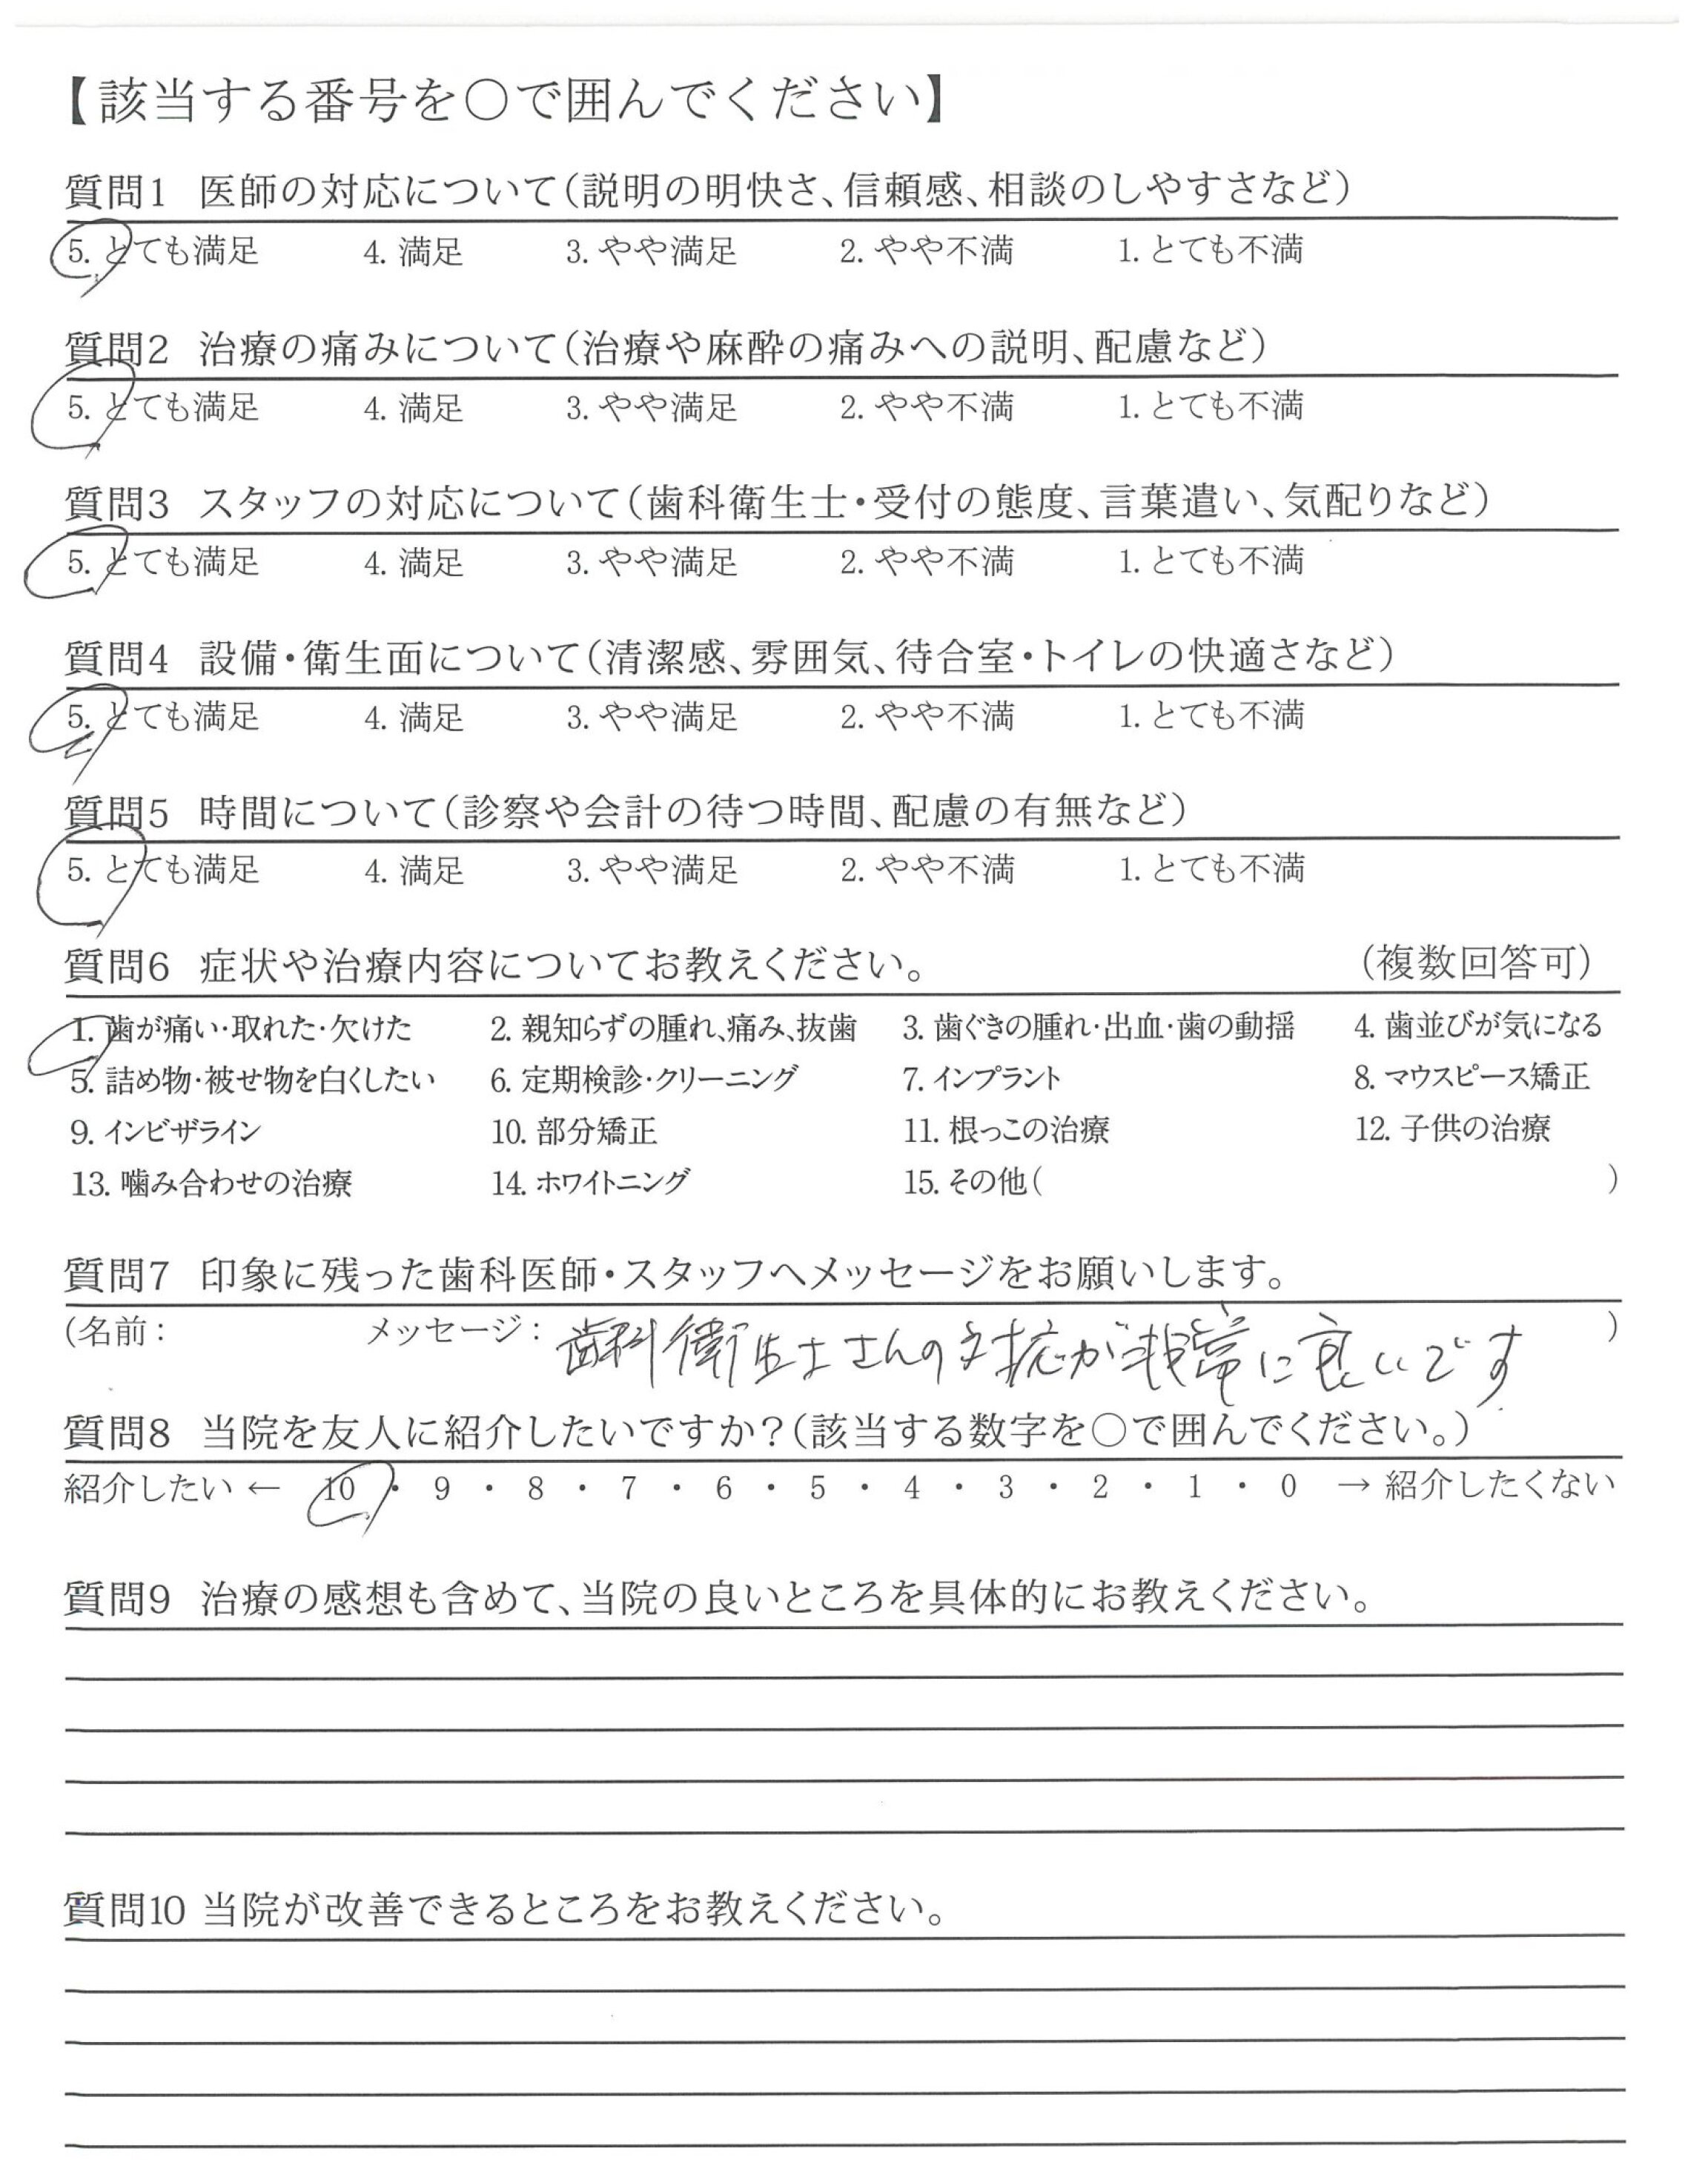 【該当する番号を○で囲んでください】
質問1 医師の対応について（説明の明快さ、信頼感、相談のしやすさなど）
5. とても満足 4. 満足 3. やや満足 2. やや不満 1. とても不満
質問2 治療の痛みについて（治療や麻酔の痛みへの説明、配慮など）
5. とても満足 4. 満足 3. やや満足 2. やや不満 1. とても不満
質問3 スタッフの対応について（歯科衛生士・受付の態度、言葉遣い、気配りなど）
5. とても満足 4. 満足 3. やや満足 2. やや不満 1. とても不満
質問4 設備・衛生面について（清潔感、雰囲気、待合室・トイレの快適さなど）
5. とても満足 4. 満足 3. やや満足 2. やや不満 1. とても不満
質問5 時間について（診察や会計の待つ時間、配慮の有無など）
5. とても満足 4. 満足 3. やや満足 2. やや不満 1. とても不満
質問6 症状や治療内容についてお教えください。 （複数回答可）
1. 歯が痛い・取れた・欠けた 2. 親知らずの腫れ、痛み、抜歯 3. 歯ぐきの腫れ・出血・歯の動揺 4. 歯並びが気になる
5. 詰め物・被せ物を白くしたい 6. 定期検診・クリーニング 7. インプラント 8. マウスピース矯正
9. インビザライン 10. 部分矯正 11. 根っこの治療 12. 子供の治療
13. 噛み合わせの治療 14. ホワイトニング 15. その他（ ）
質問7 印象に残った歯科医師・スタッフへメッセージをお願いします。
（名前： メッセージ：歯科衛生士さんの対応が非常に良いです ）
質問8 当院を友人に紹介したいですか？（該当する数字を○で囲んでください。）
紹介したい ← 10 ・ 9 ・ 8 ・ 7 ・ 6 ・ 5 ・ 4 ・ 3 ・ 2 ・ 1 ・ 0 → 紹介したくない
質問9 治療の感想も含めて、当院の良いところを具体的にお教えください。
質問10 当院が改善できるところをお教えください。